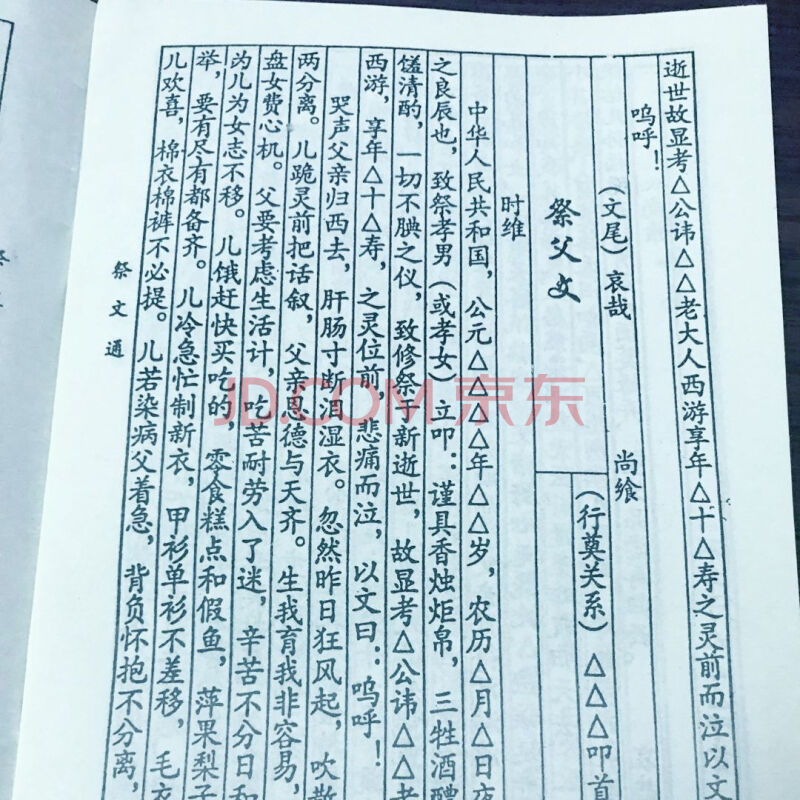 逝世故显考△公讳△△老大人西游享年△十△寿之灵前而泣以文
呜呼！
（文尾）哀哉 尚飨
（行奠关系）△△△叩首
祭父文
时维
中华人民共和国，公元△△△△年△△岁，农历△月△日夜
之良辰也，致祭孝男（或孝女）立叩：谨具香烛炬帛，三牲酒醴
馐清酌，一切不腆之仪，致修祭于新逝世，故显考△公讳△△老
西游，享年△十△寿，之灵位前，悲痛而泣，以文曰：呜呼！
哭声父亲归西去，肝肠寸断泪湿衣。忽然昨日狂风起，吹散
两分离。儿跪灵前把话叙，父亲恩德与天齐。生我育我非容易，
盘女费心机。父要考虑生活计，吃苦耐劳入了迷，辛苦不分日和
为儿为女志不移。儿饿赶快买吃的，零食糕点和假鱼，萍果梨子
举，要有尽有都备齐。儿冷急忙制新衣，甲衫单衫不差移，毛衣
儿欢喜，棉衣棉裤不必提。儿若染病父着急，背负怀抱不分离，
祭文通
JD.COM 京东